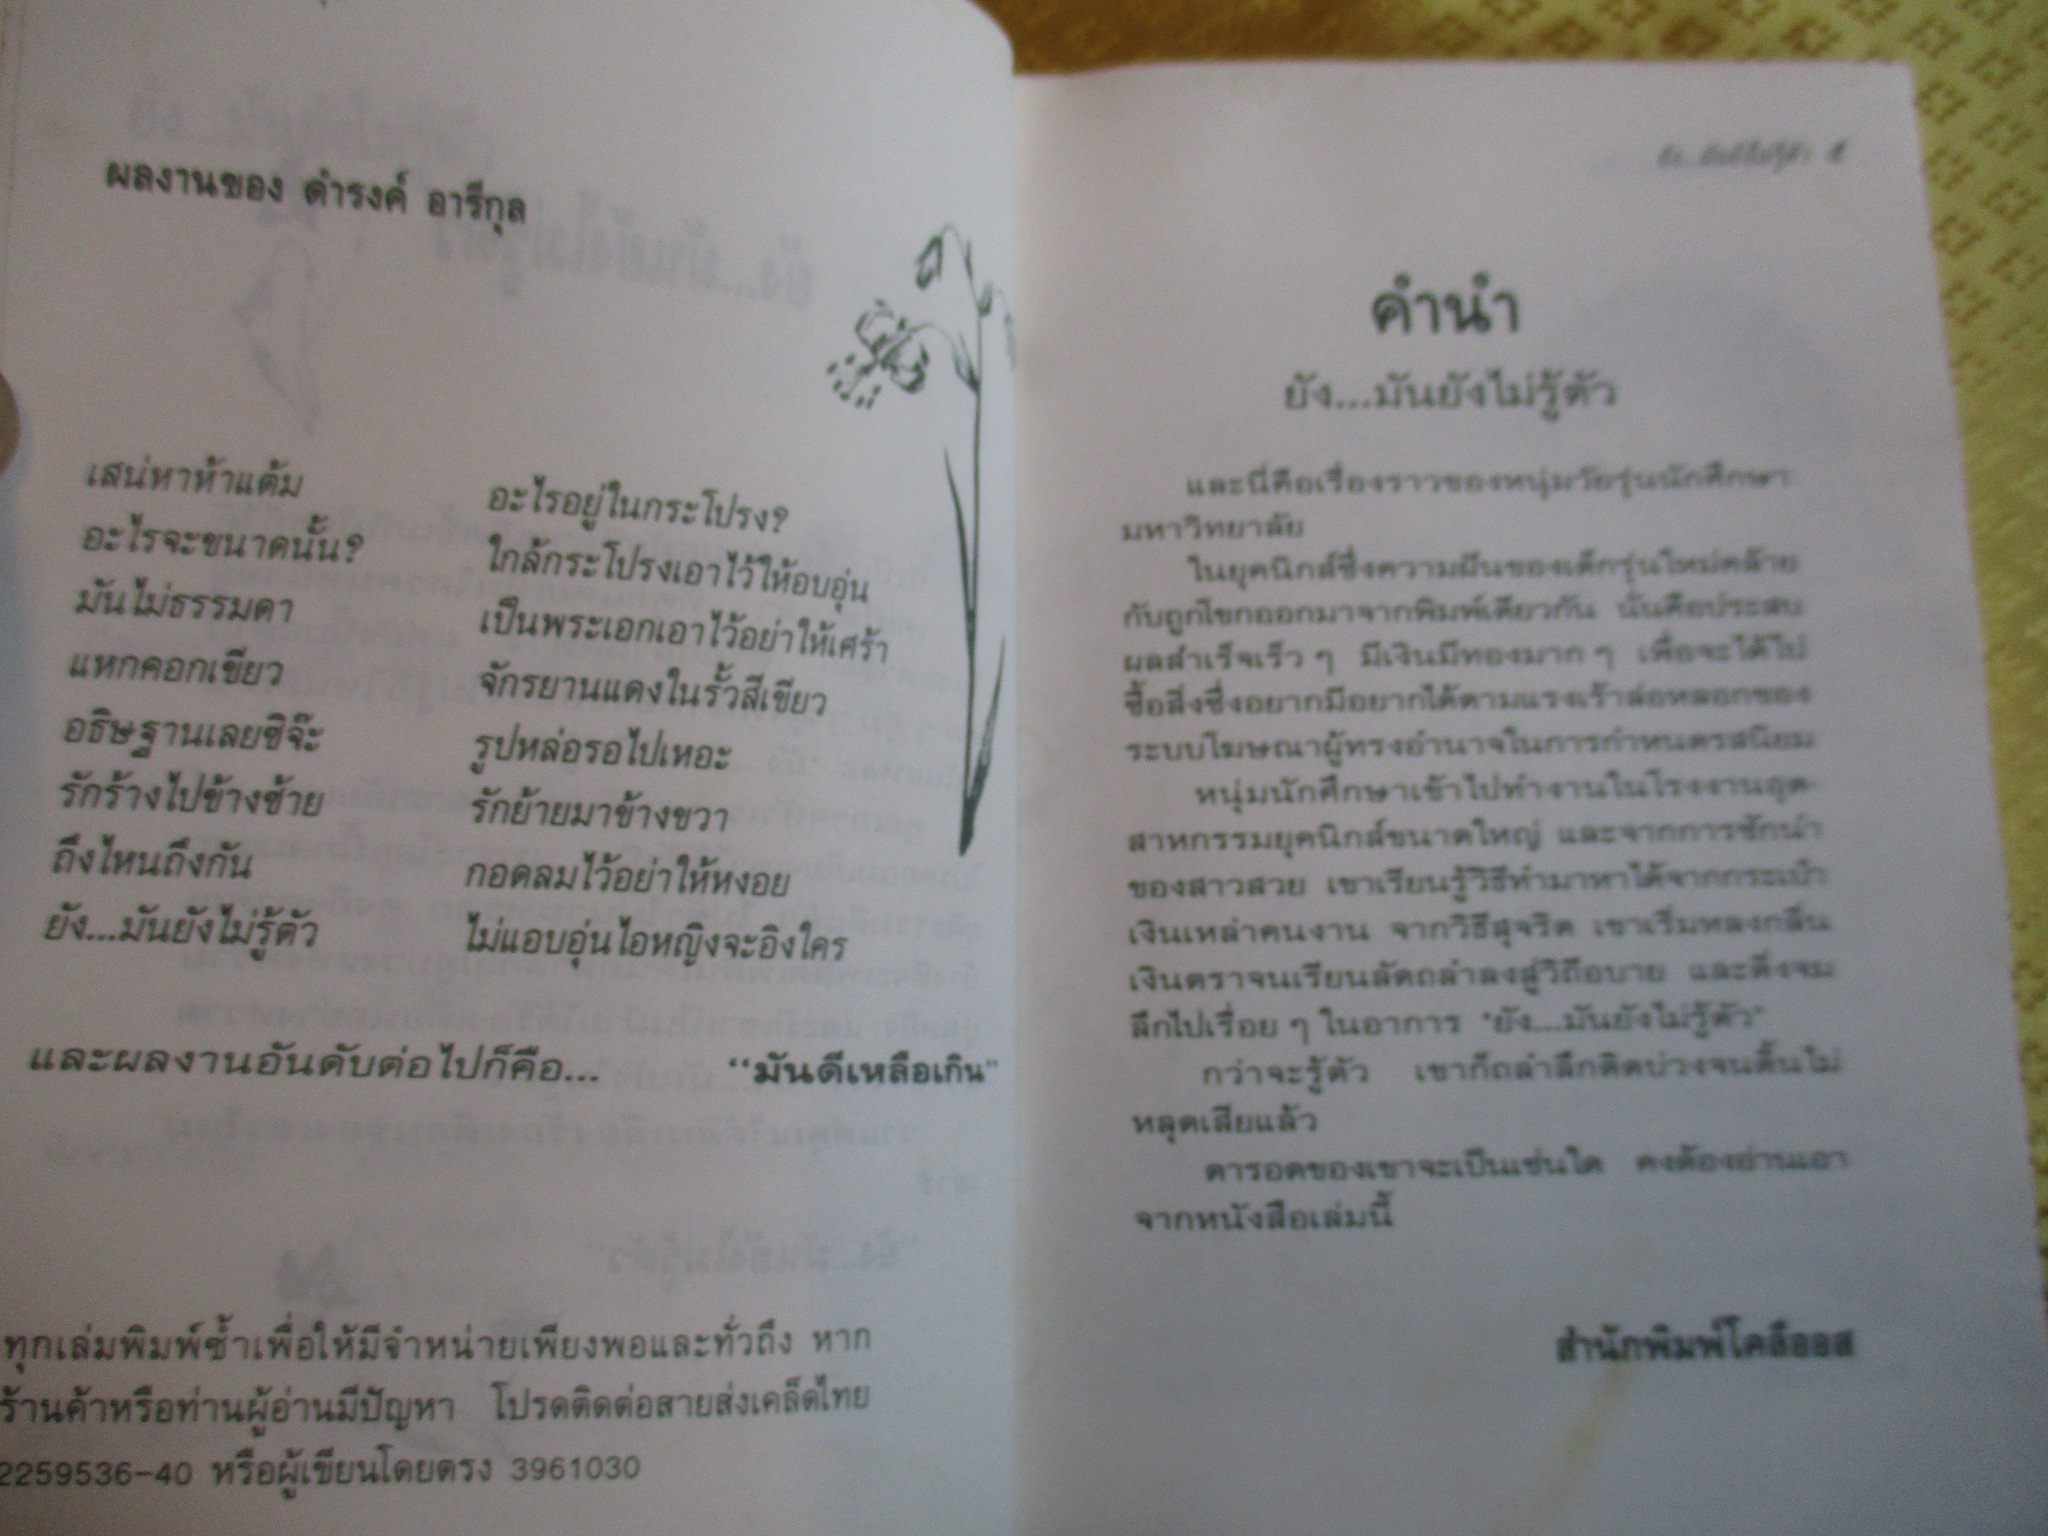 ผลงานของ ดำรงค์ อารีกุล
เสน่หาห้าแต้ม
อะไรจะขนาดนั้น?
มันไม่ธรรมดา
แหกคอกเขียว
อธิษฐานเลยซิจ๊ะ
รักร้างไปข้างซ้าย
ถึงไหนถึงกัน
ยัง...มันยังไม่รู้ตัว
อะไรอยู่ในกระโปรง?
ใกล้กระโปรงเอาไว้ให้อบอุ่น
เป็นพระเอกเอาไว้อย่าให้เศร้า
จักรยานแดงในรั้วสีเขียว
รูปหล่อรอไปเหอะ
รักย้ายมาข้างขวา
กอดลมไว้อย่าให้หงอย
ไม่แอบอุ่นไอหญิงจะอิงใคร
และผลงานอันดับต่อไปก็คือ... “มันดีเหลือเกิน”
ทุกเล่มพิมพ์ซ้ำเพื่อให้มีจำหน่ายเพียงพอและทั่วถึง หาก
ร้านค้าหรือท่านผู้อ่านมีปัญหา โปรดติดต่อสายส่งเคล็ดไทย
2259536-40 หรือผู้เขียนโดยตรง 3961030
ยัง...มันยังไม่รู้ตัว ๕
คำนำ
ยัง...มันยังไม่รู้ตัว
และนี่คือเรื่องราวของหนุ่มวัยรุ่นนักศึกษา
มหาวิทยาลัย
ในยุคนิกส์ซึ่งความฝันของเด็กรุ่นใหม่คล้าย
กับถูกไขกออกมาจากพิมพ์เดียวกัน นั่นคือประสบ
ผลสำเร็จเร็ว ๆ มีเงินมีทองมาก ๆ เพื่อจะได้ไป
ซื้อสิ่งซึ่งอยากมีอยากได้ตามแรงเร้าล่อหลอกของ
ระบบโฆษณาผู้ทรงอำนาจในการกำหนดรสนิยม
หนุ่มนักศึกษาเข้าไปทำงานในโรงงานอุต-
สาหกรรมยุคนิกส์ขนาดใหญ่ และจากการชักนำ
ของสาวสวย เขาเรียนรู้วิธีทำมาหาได้จากกระเป๋า
เงินเหล่าคนงาน จากวิธีสุจริต เขาเริ่มหลงกลิ่น
เงินตราจนเรียนลัดถลำลงสู่วิถีอบาย และดิ่งจม
ลึกไปเรื่อย ๆ ในอาการ "ยัง...มันยังไม่รู้ตัว"
กว่าจะรู้ตัว เขาก็ถลำลึกติดบ่วงจนดิ้นไม่
หลุดเสียแล้ว
ตารอดของเขาจะเป็นเช่นใด คงต้องอ่านเอา
จากหนังสือเล่มนี้
สำนักพิมพ์โคลีออส